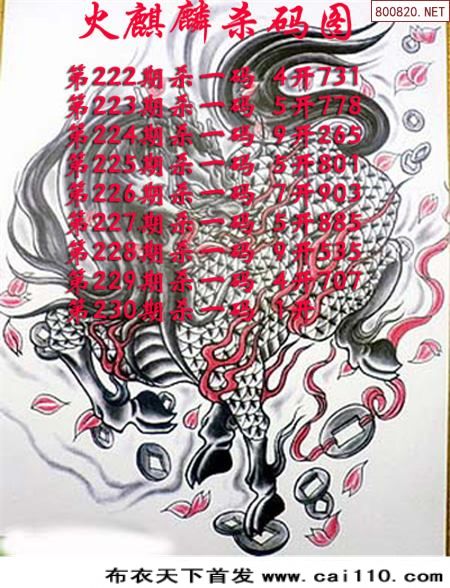 800820.NET
火麒麟杀码图
第222期杀一码 4开731
第223期杀一码 5开778
第224期杀一码 9开265
第225期杀一码 5开801
第226期杀一码 7开903
第227期杀一码 5开885
第228期杀一码 9开535
第229期杀一码 4开707
第230期杀一码 1开
布衣天下首发 www.cai110.com